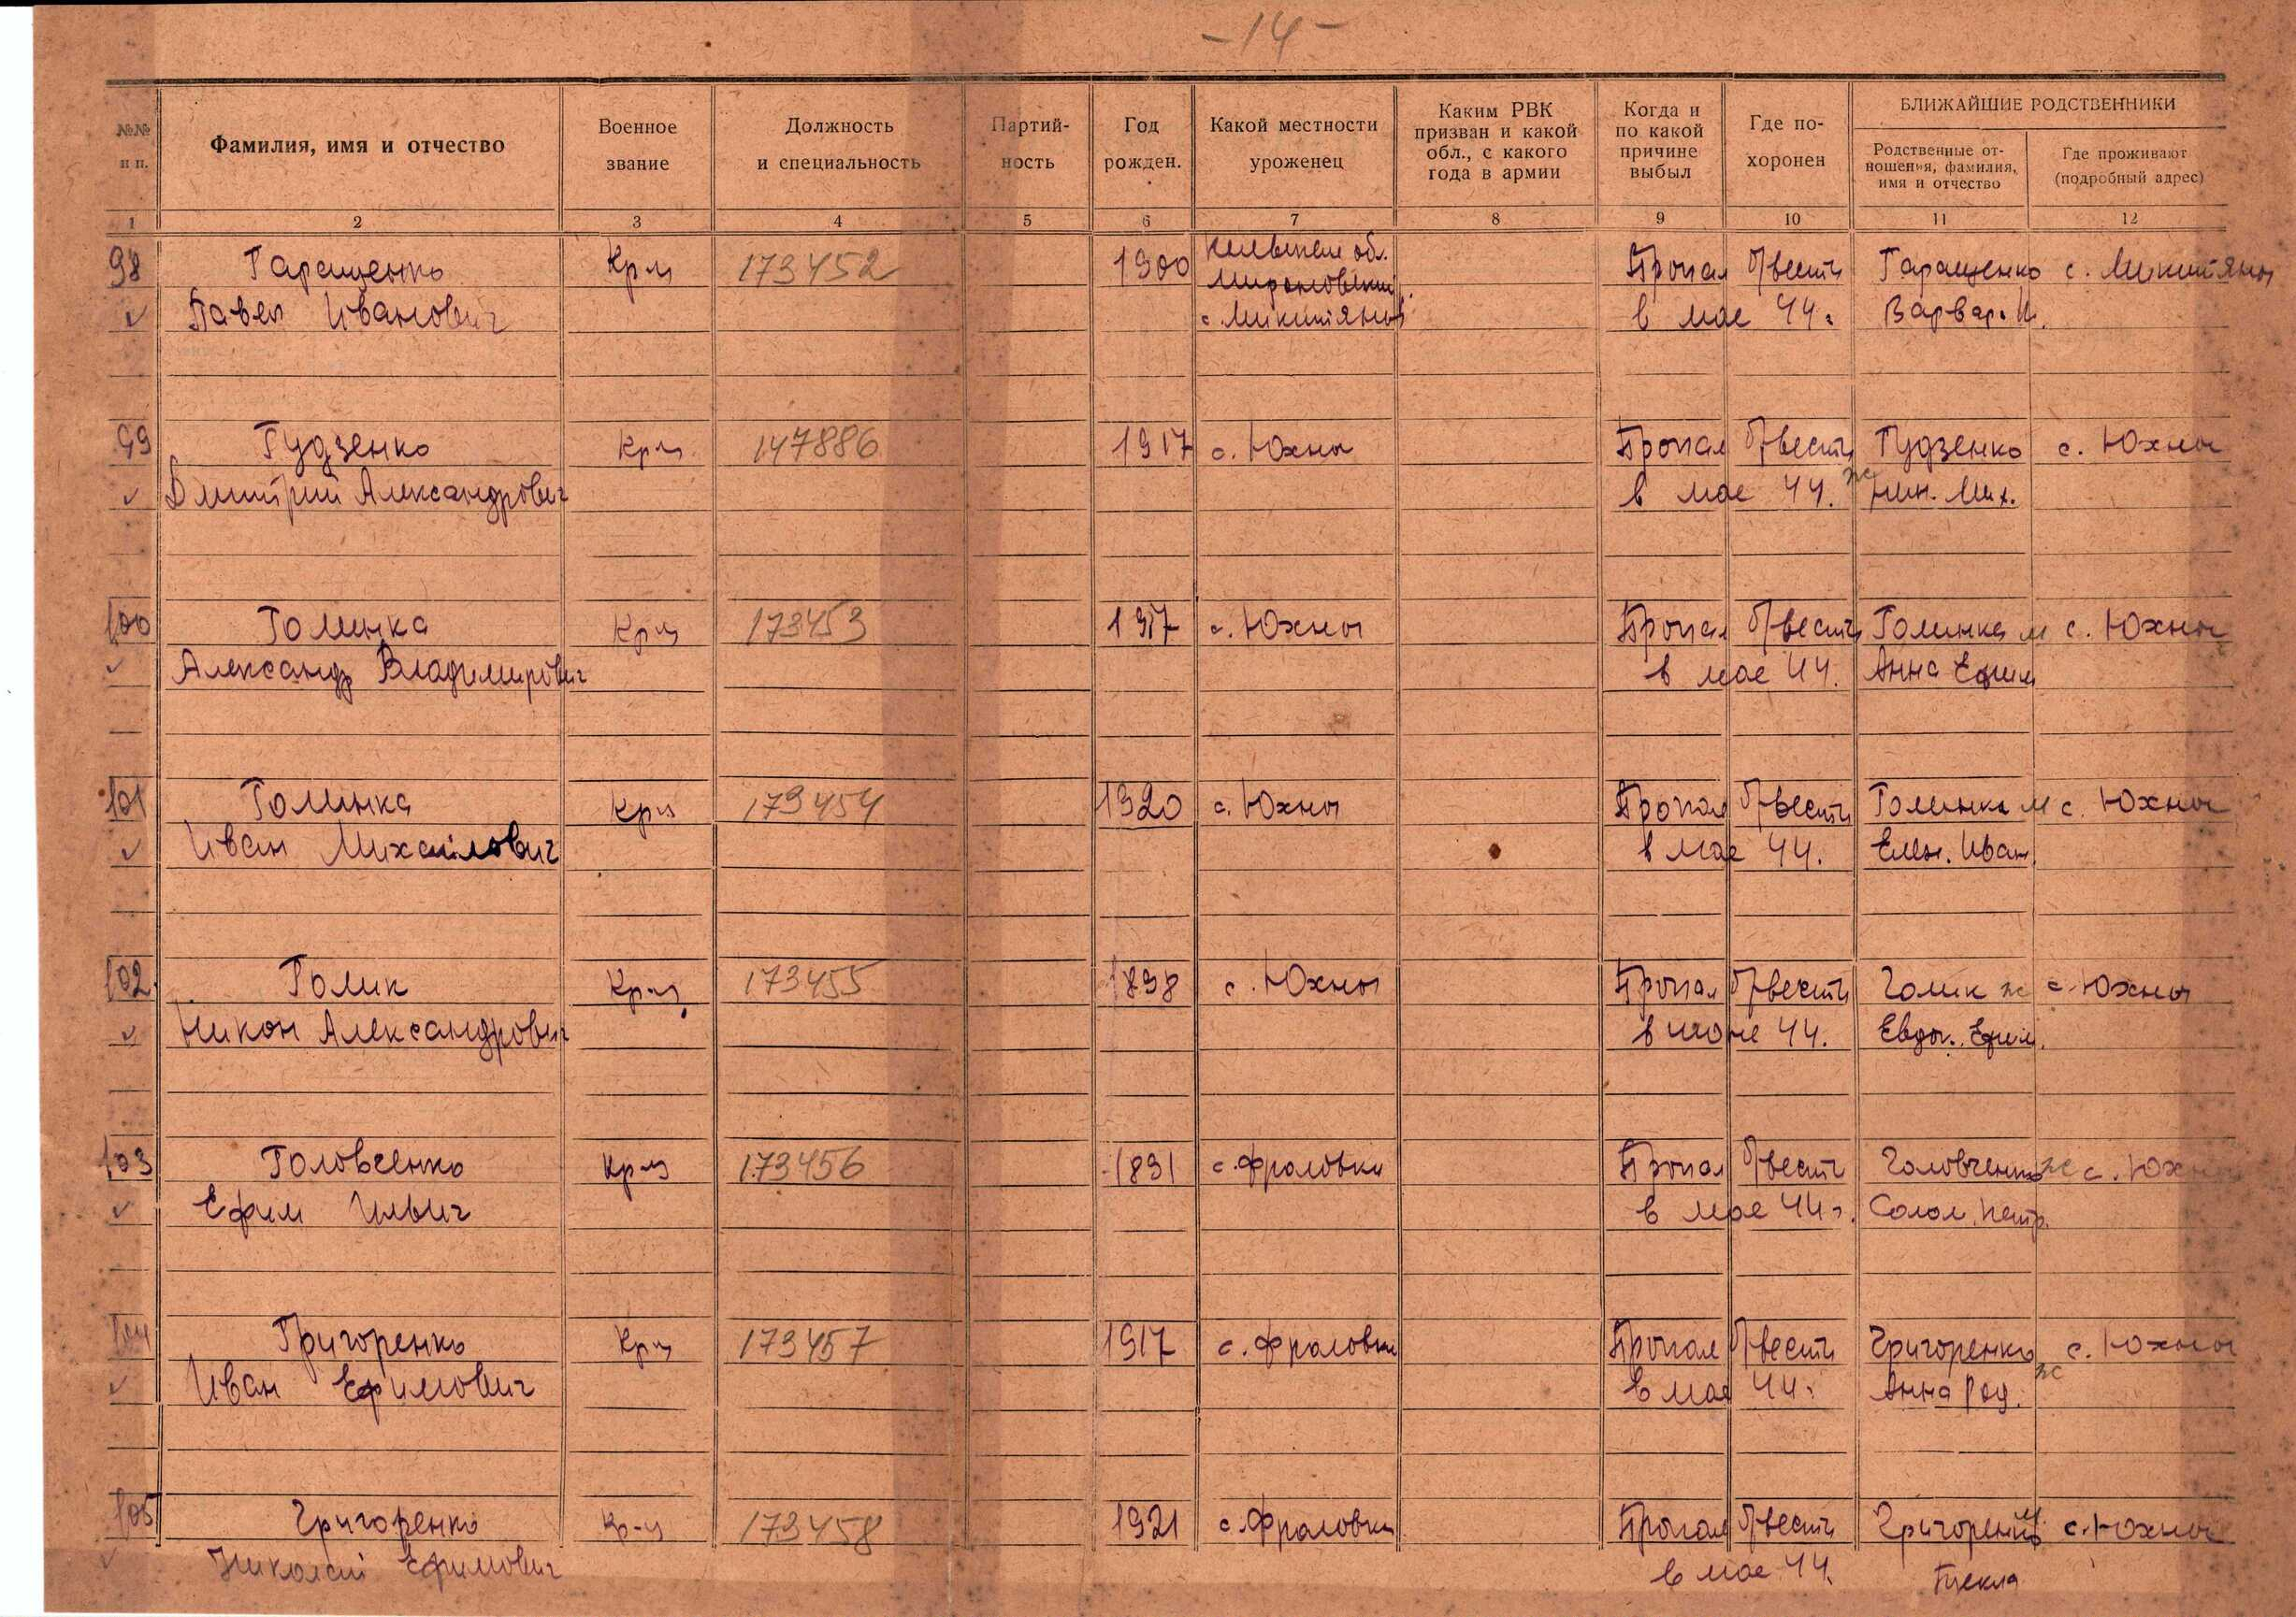 -14-
№№ п п.
Фамилия, имя и отчество
Военное звание
Должность и специальность
Партий-ность
Год рожден.
Какой местности уроженец
Каким РВК призван и какой обл., с какого года в армии
Когда и по какой причине выбыл
Где по-хоронен
БЛИЖАЙШИЕ РОДСТВЕННИКИ
Родственные от-ношения, фамилия, имя и отчество
Где проживают (подробный адрес)
1 2 3 4 5 6 7 8 9 10 11 12
98 Гаращенко Кр-ц 173452 1900 обл. Пропал б/вести Гаращенко с.
Мироновский
✓ Павел Иванович с. в мае 44г. Варвар. И.
99 Гудзенко Кр-ц 147886 1917 с. Южны Пропал б/вести Гудзенко с. Южны
✓ Дмитрий Александрович в мае 44. ж Мих.
100 Голинка Кр-ц 173453 1917 с. Южны Пропал б/вести Голинка м с. Южны
✓ Александр Владимирович в мае 44. Анна Ефим
101 Голинка Кр-ц 173454 1920 с. Южны Пропал б/вести Голинка м с. Южны
✓ Иван Михайлович в мае 44. Елен. Иван.
102. Голик Кр-ц 173455 1898 с. Южны Пропал б/вести Голик ж с. Южны
✓ Никон Александрович в 44. Евдок. Ефим.
103 Головченко Кр-ц 173456 1891 с. Фроловки Пропал б/вести Головченко ж с. Южн
✓ Ефим Ильич в мае 44г. Солом. Петр.
104 Григоренко Кр-ц 173457 1917 с. Фроловки Пропал б/вести Григоренко ж с. Южны
✓ Иван Ефимович в мае 44г. Анна Род.
105 Григоренко Кр-ц 173458 1921 с. Фроловки Пропал б/вести Григоренко м с. Южны
✓ Николай Ефимович в мае 44. Текля